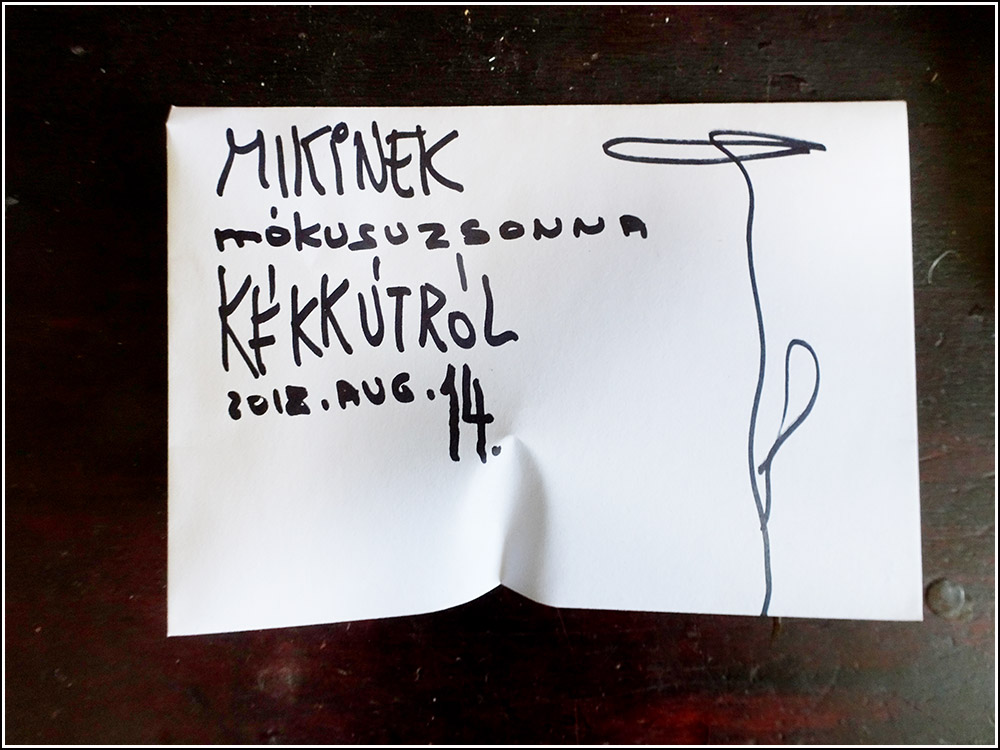 MIKINEK
mókusuzsonna
KÉKKÚTRÓL
2012. AUG. 14.